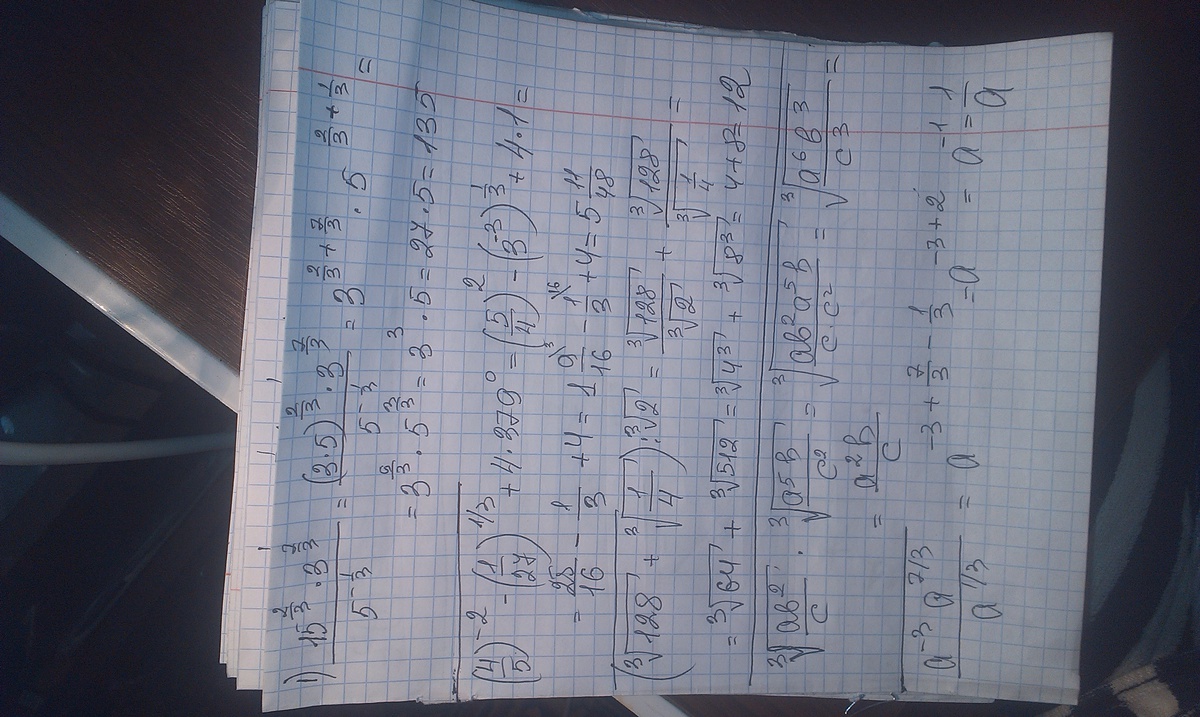 1) (15^(2/3) · 3^(7/3)) / 5^(-1/3) = ((3·5)^(2/3) · 3^(7/3)) / 5^(-1/3) = 3^(2/3 + 7/3) · 5^(2/3 + 1/3) =
= 3^(9/3) · 5^(3/3) = 3^3 · 5 = 27·5 = 135
(4/5)^(-2) - (1/27)^(1/3) + 4·379^0 = (5/4)^2 - (3^(-3))^(1/3) + 4·1 =
= 25/16 - 1/3 + 4 = 1 9/16 - 1/3 + 4 = 5 11/48
(∛128 + ∛(1/4)) : ∛2 = ∛128 / ∛2 + ∛128 / ∛(1/4) =
= ∛64 + ∛512 = ∛4^3 + ∛8^3 = 4 + 8 = 12
∛(ab^2 / c) · ∛(a^5b / c^2) = ∛(ab^2a^5b / c·c^2) = ∛(a^6b^3 / c^3) =
= a^2b / c
(a^(-3) a^(7/3)) / a^(1/3) = a^(-3 + 7/3 - 1/3) = a^(-3+2) = a^(-1) = 1/a